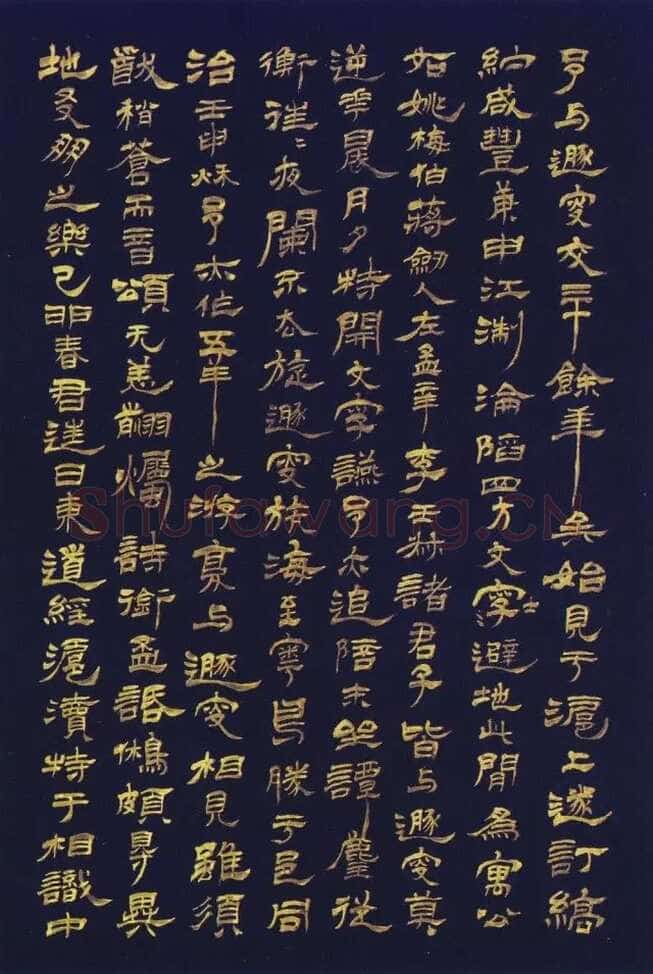 予与遯叟交三十餘年矣始見于滬上遂訂縞
紵咸豐庚申江淛淪陷四方文字士避地此間為寓公
如姚梅伯蔣劍人左孟辛李壬叔諸君子皆与遯叟莫
逆花晨月夕特開文字讌予亦追陪末坐譚麈從
衡往〻夜闌不去旋遯叟航海至粵曷勝于邑同
治壬申秋予亦作五羊之游与遯叟相見雖須
髮稍蒼而音頌无恙翦燭詩銜盃話舊頗㝵異
地友朋之樂己卯春君往日東道經滬瀆特于相識中
Shufawang.CN